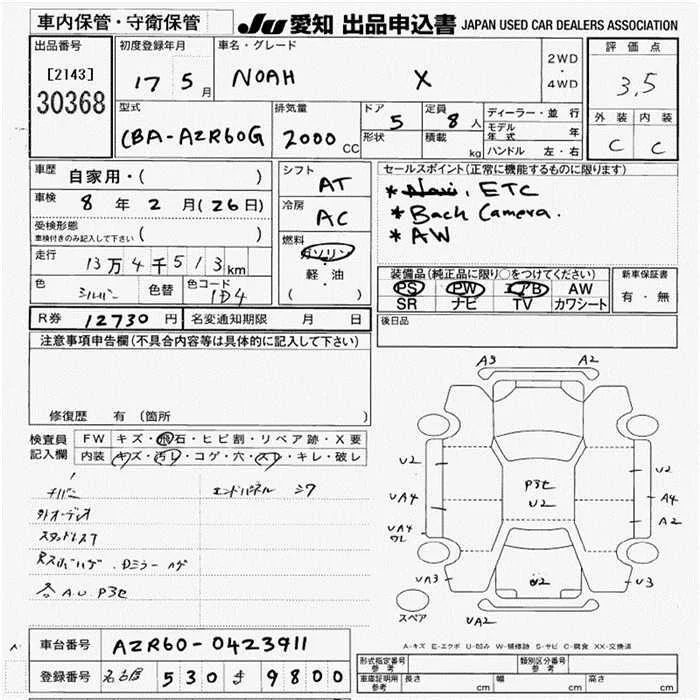 車内保管・守衛保管
JU 愛知 出品申込書 JAPAN USED CAR DEALERS ASSOCIATION
出品番号
[2143]
30368
初度登録年月
17 5月
車名・グレード
NOAH X
2WD
・
4WD
評価点
3.5
外装 内装
C C
型式
CBA-AZR60G
排気量
2000 CC
ドア 5
形状
定員 8人
積載 kg
ディーラー・並行
モデル年式 年
ハンドル 左・右
車歴 自家用・( )
車検 8年 2月(26日)
受検形態
車検付きのみ記入して下さい ( )
走行
13万4千513km
色 シルバー 色替 色コード 1D4
シフト
AT
冷房
AC
燃料
ガソリン
・
軽・油
( )
セールスポイント(正常に機能するものに限ります)
* Navi, ETC
* Back Camera.
* AW
装備品(純正品に限り○をつけてください)
PS PW エアB AW
SR ナビ TV カワシート
新車保証書
有・無
R券 12730円 名変通知期限 月 日
後日品
注意事項申告欄(不具合内容等は具体的に記入して下さい)
修復歴 有(箇所 )
検査員
記入欄
FW キズ・飛石・ヒビ割・リペア跡・X要
内装 キズ・汚レ・コゲ・穴・スレ・キレ・破レ
エンドパネル シワ
外オーディオ
A.U P3セ
A3 A2
U2 U2
P3セ
U2
UA4 A4
UA4 A2
ワレ
UA3 U2 U3
UA2
スペア
A-キズ E-エクボ U-凹み W-補修跡 S-サビ C-腐食 XX-交換済
車台番号 AZR60-0423911
登録番号 名古屋 530 き 9800
形式指定番号
参考
類別区分番号
参考
車庫証明用
参考
長さ cm 幅 cm 高さ cm